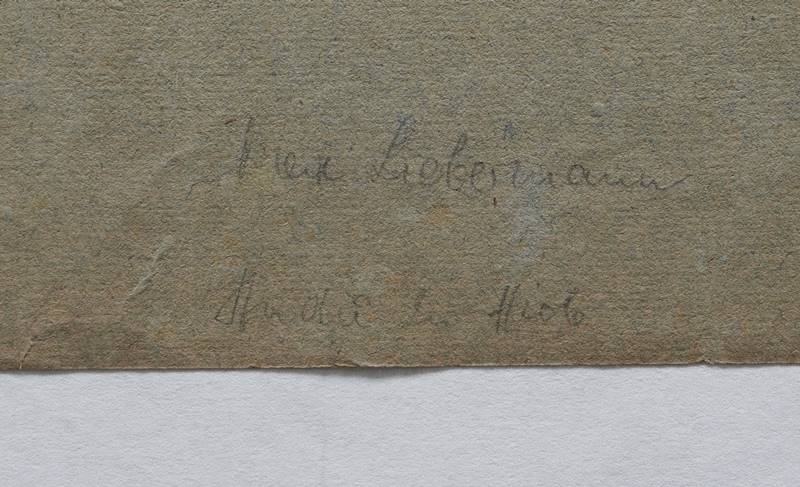 Max Liebermann
Studie zu Hiob